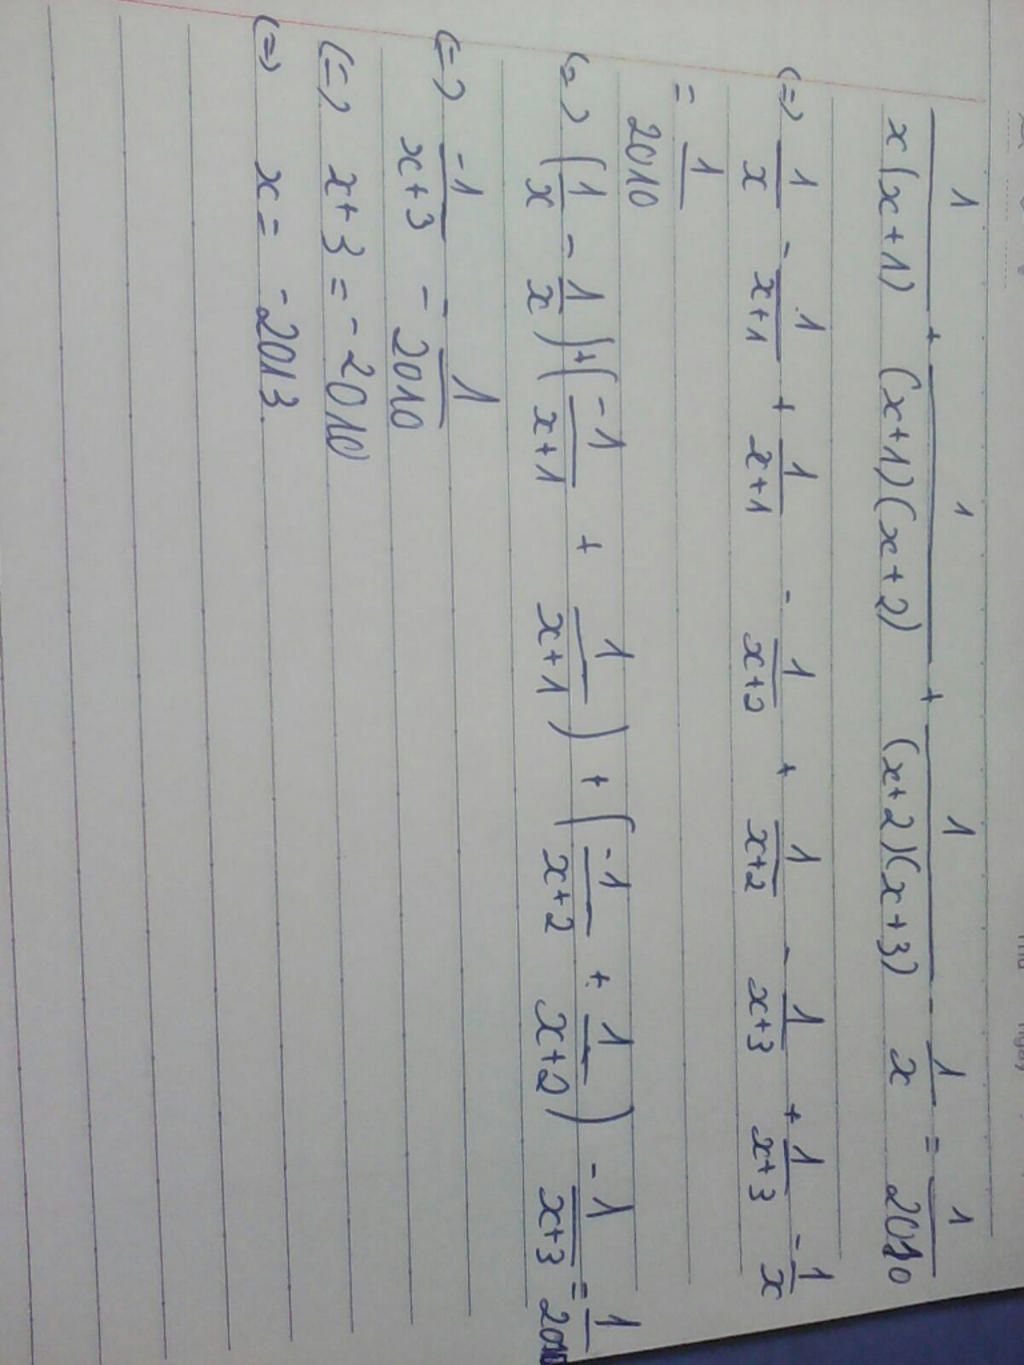 1/x(x+1) + 1/(x+1)(x+2) + 1/(x+2)(x+3) - 1/x = 1/2010
(=) 1/x - 1/x+1 + 1/x+1 - 1/x+2 + 1/x+2 - 1/x+3 + 1/x+3 - 1/x
= 1/2010
(=) (1/x - 1/x) + (-1/x+1 + 1/x+1) + (-1/x+2 + 1/x+2) - 1/x+3 = 1/2010
(=) -1/x+3 - 1/2010
(=) x+3 = -2010
(=) x = -2013.